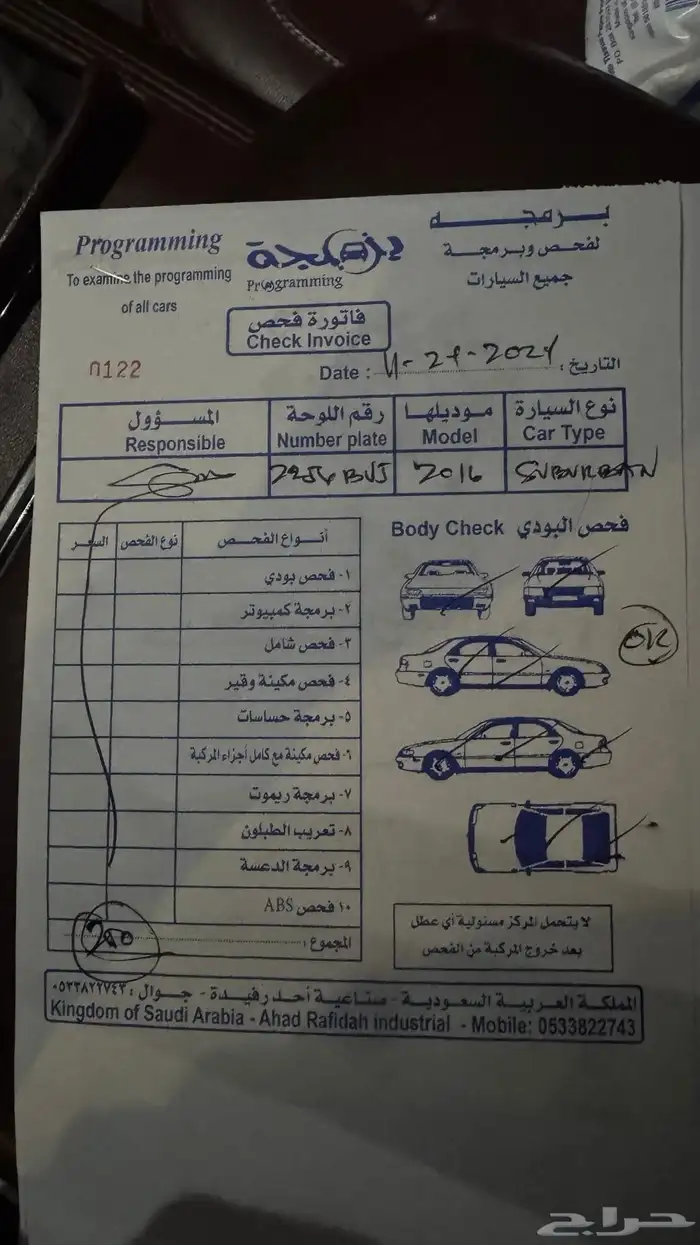 Programming
To examine the programming
of all cars
برمجة
Programming
برمجه
لفحص وبرمجة
جميع السيارات
فاتورة فحص
Check Invoice
0122
Date : التاريخ :
نوع السيارة موديلها رقم اللوحة المسؤول
Car Type Model Number plate Responsible
SUBURBAN 2016 BUJ
أنواع الفحص نوع الفحص السعر
١- فحص بودي
٢- برمجة كمبيوتر
٣- فحص شامل
٤- فحص مكينة وقير
٥- برمجة حساسات
٦- فحص مكينة مع كامل أجزاء المركبة
٧- برمجة ريموت
٨- تعريب الطبلون
٩- برمجة الدعسة
١٠ فحص ABS
المجموع :
Body Check فحص البودي
OK
لا يتحمل المركز مسئولية أي عطل
بعد خروج المركبة من الفحص
المملكة العربية السعودية - صناعية أحد رفيدة - جوال : ٠٥٣٣٨٢٢٧٤٣
Kingdom of Saudi Arabia - Ahad Rafidah industrial - Mobile: 0533822743
حراج